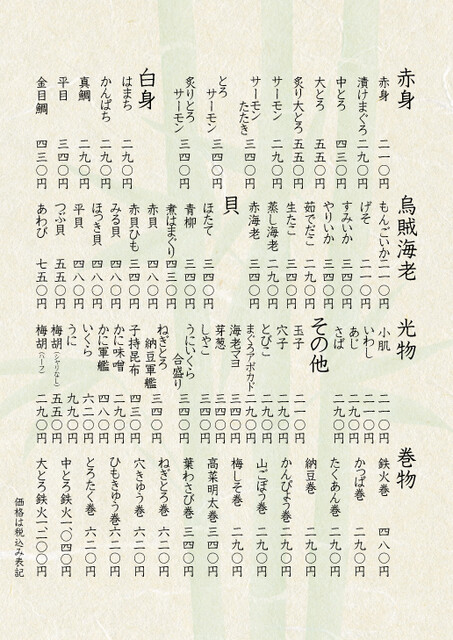 赤身
赤身 二一〇円
漬けまぐろ 二九〇円
中とろ 四三〇円
大とろ 五五〇円
炙り大とろ 五五〇円
サーモン 二九〇円
サーモン
たたき 三四〇円
とろ
サーモン 三四〇円
炙りとろ
サーモン 三四〇円
白身
はまち 二九〇円
かんぱち 二九〇円
真鯛 二九〇円
平目 三四〇円
金目鯛 四三〇円
烏賊海老
もんごいか 二一〇円
げそ 二一〇円
すみいか 三四〇円
やりいか 三四〇円
茹でだこ 二九〇円
生たこ 三四〇円
蒸し海老 二九〇円
赤海老 三四〇円
貝
ほたて 三四〇円
青柳 三四〇円
煮はまぐり 四三〇円
赤貝 四八〇円
赤貝ひも 三四〇円
みる貝 四八〇円
ほっき貝 四八〇円
平貝 四八〇円
つぶ貝 五五〇円
あわび 七五〇円
光物
小肌 二一〇円
いわし 二一〇円
あじ 二九〇円
さば 二九〇円
その他
玉子 二一〇円
穴子 二九〇円
とびこ 二九〇円
まぐろアボカド 二九〇円
海老マヨ 三四〇円
芽葱 三四〇円
しゃこ 三四〇円
うにいくら
合盛り
ねぎとろ
納豆軍艦 三四〇円
子持昆布 四三〇円
かに味噌 二九〇円
かに軍艦 四八〇円
いくら 六二〇円
うに 九九〇円
梅胡(シャリなし) 五五〇円
梅胡(ハーフ) 二九〇円
巻物
鉄火巻 四八〇円
かっぱ巻 二九〇円
たくあん巻 二九〇円
納豆巻 二九〇円
かんぴょう巻 二九〇円
山ごぼう巻 二九〇円
梅しそ巻 二九〇円
高菜明太巻 三四〇円
葉わさび巻 三四〇円
ねぎとろ巻 六二〇円
穴きゅう巻 六二〇円
ひもきゅう巻 六二〇円
とろたく巻 六二〇円
中とろ鉄火 一、〇四〇円
大とろ鉄火 一、二〇〇円
価格は税込み表記